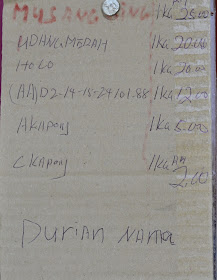 MUSANG KING 1kg 25.00
UDANG MERAH 1kg 20.00
HOLO 1kg 20.00
(AA)D2-14-15-24/01.88 1kg 12.00
AKAPONG 1kg 5.00
CKAPONG 1kg 2.00
DURIAN NAMA